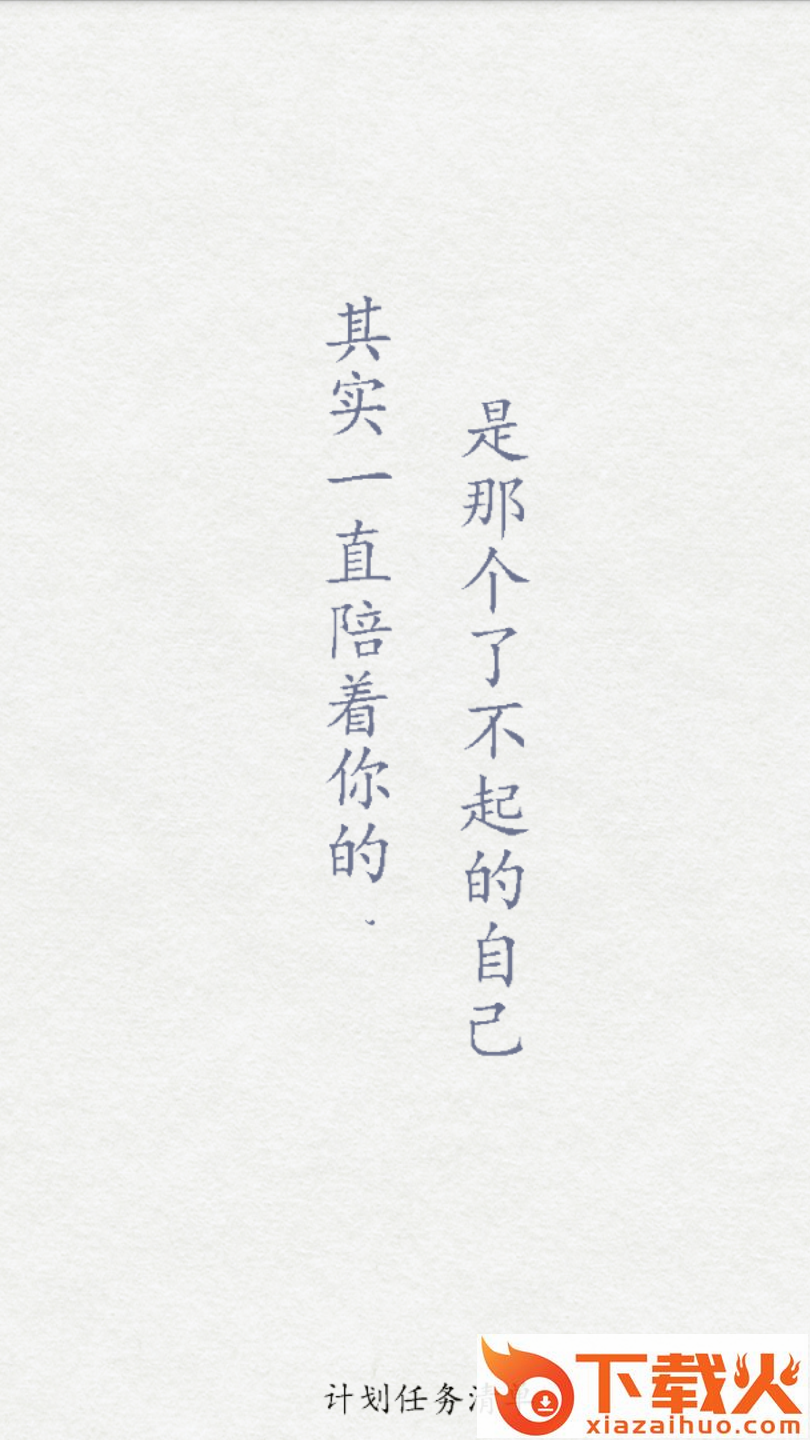 其实一直陪着你的、
是那个了不起的自己
计划任务清单
下载火
xiazaihuo.com